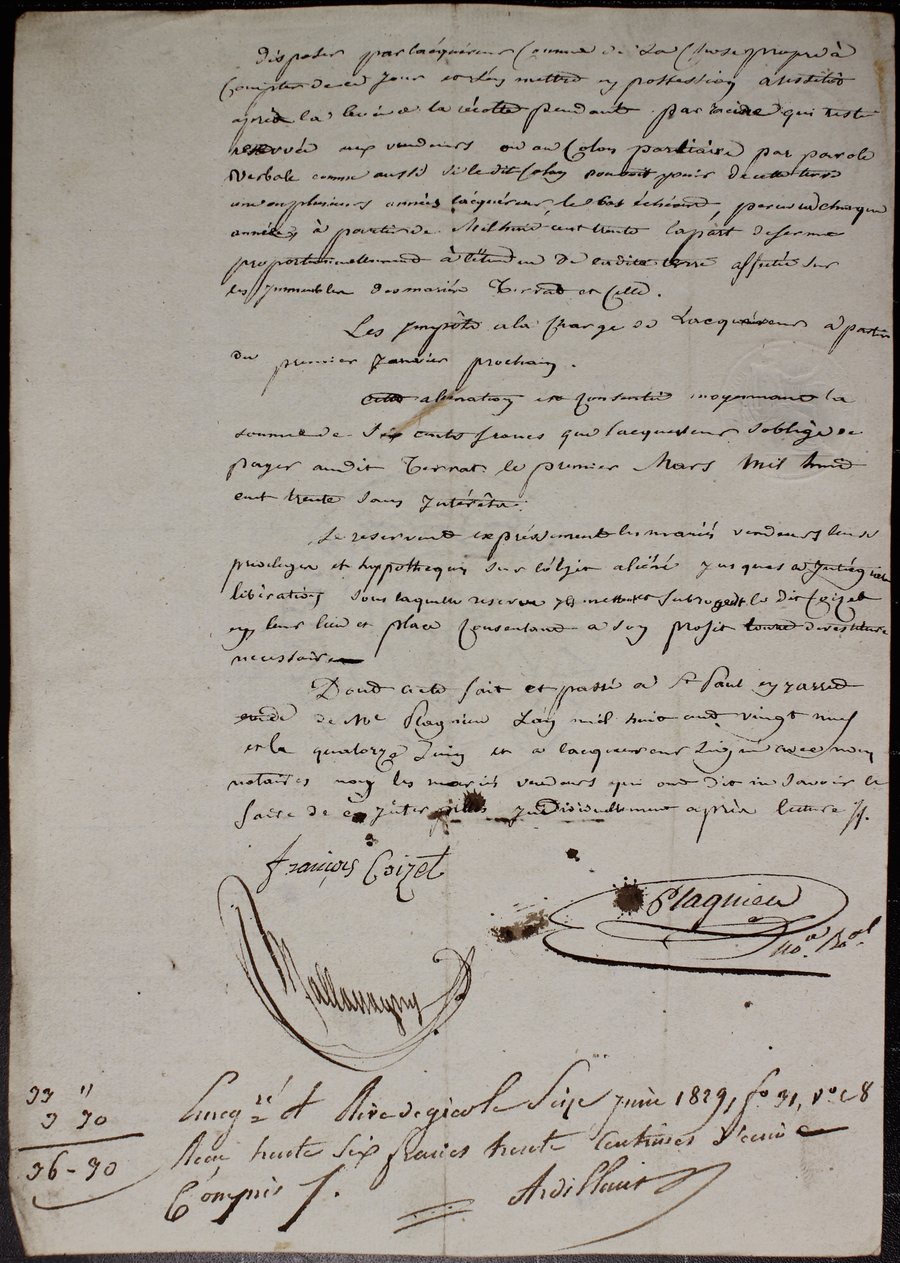 disposer par l'acquéreur comme de la chose propre à
compter de ce jour et s'en mettre en possession aussitôt
après la levée de la récolte pendante par racine qui reste
reservée aux vendeurs ou au Colon partiaire par parole
verbale comme aussi si le dit Colon pouvoit jouir de cette terre
une ou plusieurs années l'acquéreur le cas échéant, percevra chaque
année, à partir de Mil huit cent trente la part de ferme
proportionnellement à l'étendue de ladite terre affectée sur
les immeubles des mariés Terrat et Cellé.
Les impôts a la charge de Lacquéreur à partir
du premier Janvier prochain.
Cette alienation est consentie moyennant la
somme de Six cents francs que lacquereur s'oblige de
payer audit Terrat le premier Mars Mil huit
cent trente sans Intérêts.
Se reservent expréssément les mariés vendeurs leurs
privileges et hypotheques sur l'objet aliéné jusques a
libération, sous laquelle reserve ils mettent et subrogent le dit Coizet
en leur lieu et place consentant a son profit toute devestiture
necessaire
Dont acte fait et passé a St Paul en jarret
etude de Me Plagnieu L'an mil huit cent vingt neuf
et le quatorze Juin et a lacquereur signé avec nous
notaires non les mariés vendeurs qui ont dit ne savoir le
faire de ce Individuellement après lecture
François Coizet
Plagnieu
no. Ral
Mallassagny
33 "
3 30
36 - 30
Enregré à Rive de gier le Seize Juin 1829, fo 31, Vo C 8
Reçu trente six francs trente Centimes Decime
Compris
Ardillait